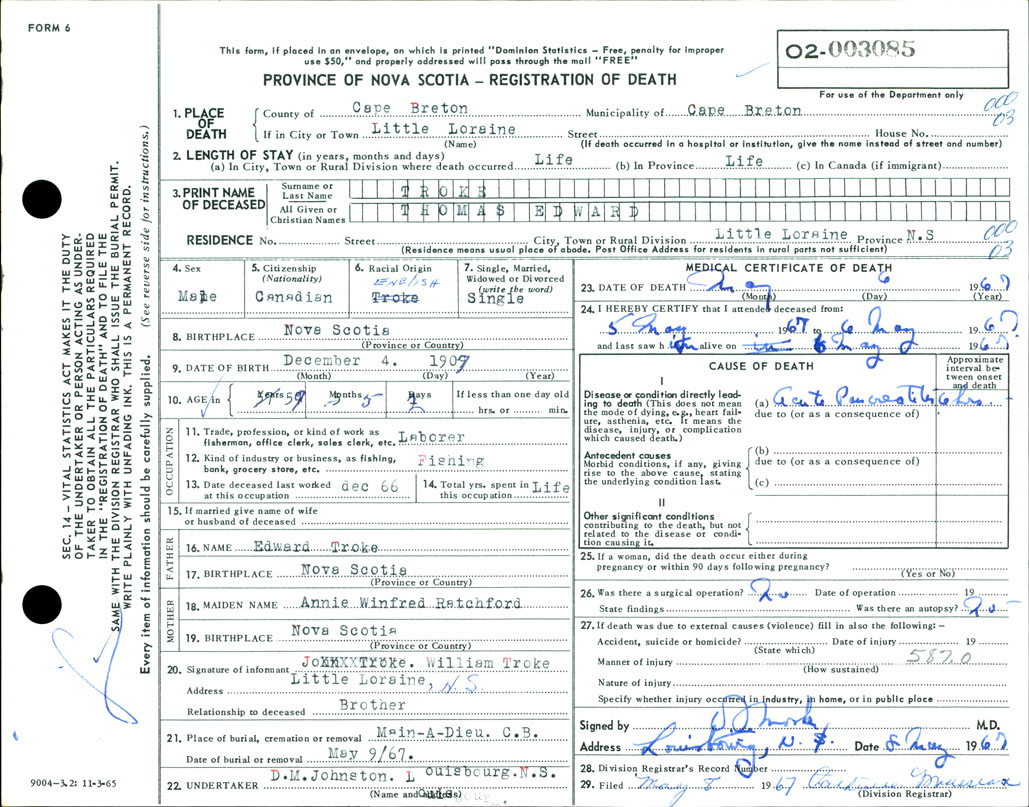 FORM 6
This form, if placed in an envelope, on which is printed "Dominion Statistics – Free, penalty for improper
use $50," and properly addressed will pass through the mail "FREE"
O2-003085
PROVINCE OF NOVA SCOTIA – REGISTRATION OF DEATH
For use of the Department only
1. PLACE OF DEATH
County of Cape Breton Municipality of Cape Breton
000
03
If in City or Town Little Loraine Street House No.
(Name) (If death occurred in a hospital or institution, give the name instead of street and number)
2. LENGTH OF STAY (in years, months and days)
(a) In City, Town or Rural Division where death occurred Life (b) In Province Life (c) In Canada (if immigrant)
3. PRINT NAME OF DECEASED
Surname or Last Name TROKE
All Given or Christian Names THOMAS EDWARD
RESIDENCE No. Street City, Town or Rural Division Little Loraine Province N.S
000
03
(Residence means usual place of abode. Post Office Address for residents in rural parts not sufficient)
4. Sex
Male
5. Citizenship
(Nationality)
Canadian
6. Racial Origin
ENGLISH
Troke
7. Single, Married,
Widowed or Divorced
(write the word)
Single
8. BIRTHPLACE Nova Scotia
(Province or Country)
9. DATE OF BIRTH December 4. 1909
(Month) (Day) (Year)
10. AGE in Years Months 5 Days If less than one day old
hrs. or min.
OCCUPATION
11. Trade, profession, or kind of work as
fisherman, office clerk, sales clerk, etc. Laborer
12. Kind of industry or business, as fishing,
bank, grocery store, etc. Fishing
13. Date deceased last worked
at this occupation dec 66
14. Total yrs. spent in
this occupation Life
15. If married give name of wife
or husband of deceased
FATHER
16. NAME Edward Troke
17. BIRTHPLACE Nova Scotia
(Province or Country)
MOTHER
18. MAIDEN NAME Annie Winfred Ratchford
19. BIRTHPLACE Nova Scotia
(Province or Country)
20. Signature of informant JoXXXXTroke. William Troke
Address Little Loraine, N.S.
Relationship to deceased Brother
21. Place of burial, cremation or removal Main-A-Dieu. C.B.
Date of burial or removal May 9/67.
22. UNDERTAKER D.M.Johnston. Louisbourg.N.S.
(Name and Address)
MEDICAL CERTIFICATE OF DEATH
23. DATE OF DEATH May 6 1967
(Month) (Day) (Year)
24. I HEREBY CERTIFY that I attended deceased from:
5 May 1967 to 6 May 1967
and last saw him alive on 6 May 1967
CAUSE OF DEATH
Approximate
interval be-
tween onset
and death
I
Disease or condition directly lead-
ing to death (This does not mean
the mode of dying, e.g., heart fail-
ure, asthenia, etc. It means the
disease, injury, or complication
which caused death.)
(a) Acute Pancreatitis 6 hrs.
due to (or as a consequence of)
Antecedent causes
Morbid conditions, if any, giving
rise to the above cause, stating
the underlying condition last.
(b)
due to (or as a consequence of)
(c)
II
Other significant conditions
contributing to the death, but not
related to the disease or condi-
tion causing it.
25. If a woman, did the death occur either during
pregnancy or within 90 days following pregnancy?
(Yes or No)
26. Was there a surgical operation? No Date of operation 19
State findings Was there an autopsy? No
27. If death was due to external causes (violence) fill in also the following: –
Accident, suicide or homicide? Date of injury 19
(State which)
Manner of injury 5870
(How sustained)
Nature of injury
Specify whether injury occurred in industry, in home, or in public place
Signed by M.D.
Address Louisbourg, N.S. Date 8 May 1967
28. Division Registrar's Record Number
29. Filed May 8 1967
(Division Registrar)
SEC. 14 – VITAL STATISTICS ACT MAKES IT THE DUTY
OF THE UNDERTAKER OR PERSON ACTING AS UNDER-
TAKER TO OBTAIN ALL THE PARTICULARS REQUIRED
IN THE "REGISTRATION OF DEATH" AND TO FILE THE
SAME WITH THE DIVISION REGISTRAR WHO SHALL ISSUE THE BURIAL PERMIT.
WRITE PLAINLY WITH UNFADING INK. THIS IS A PERMANENT RECORD.
Every item of information should be carefully supplied. (See reverse side for instructions.)
9004–3.2: 11-3-65